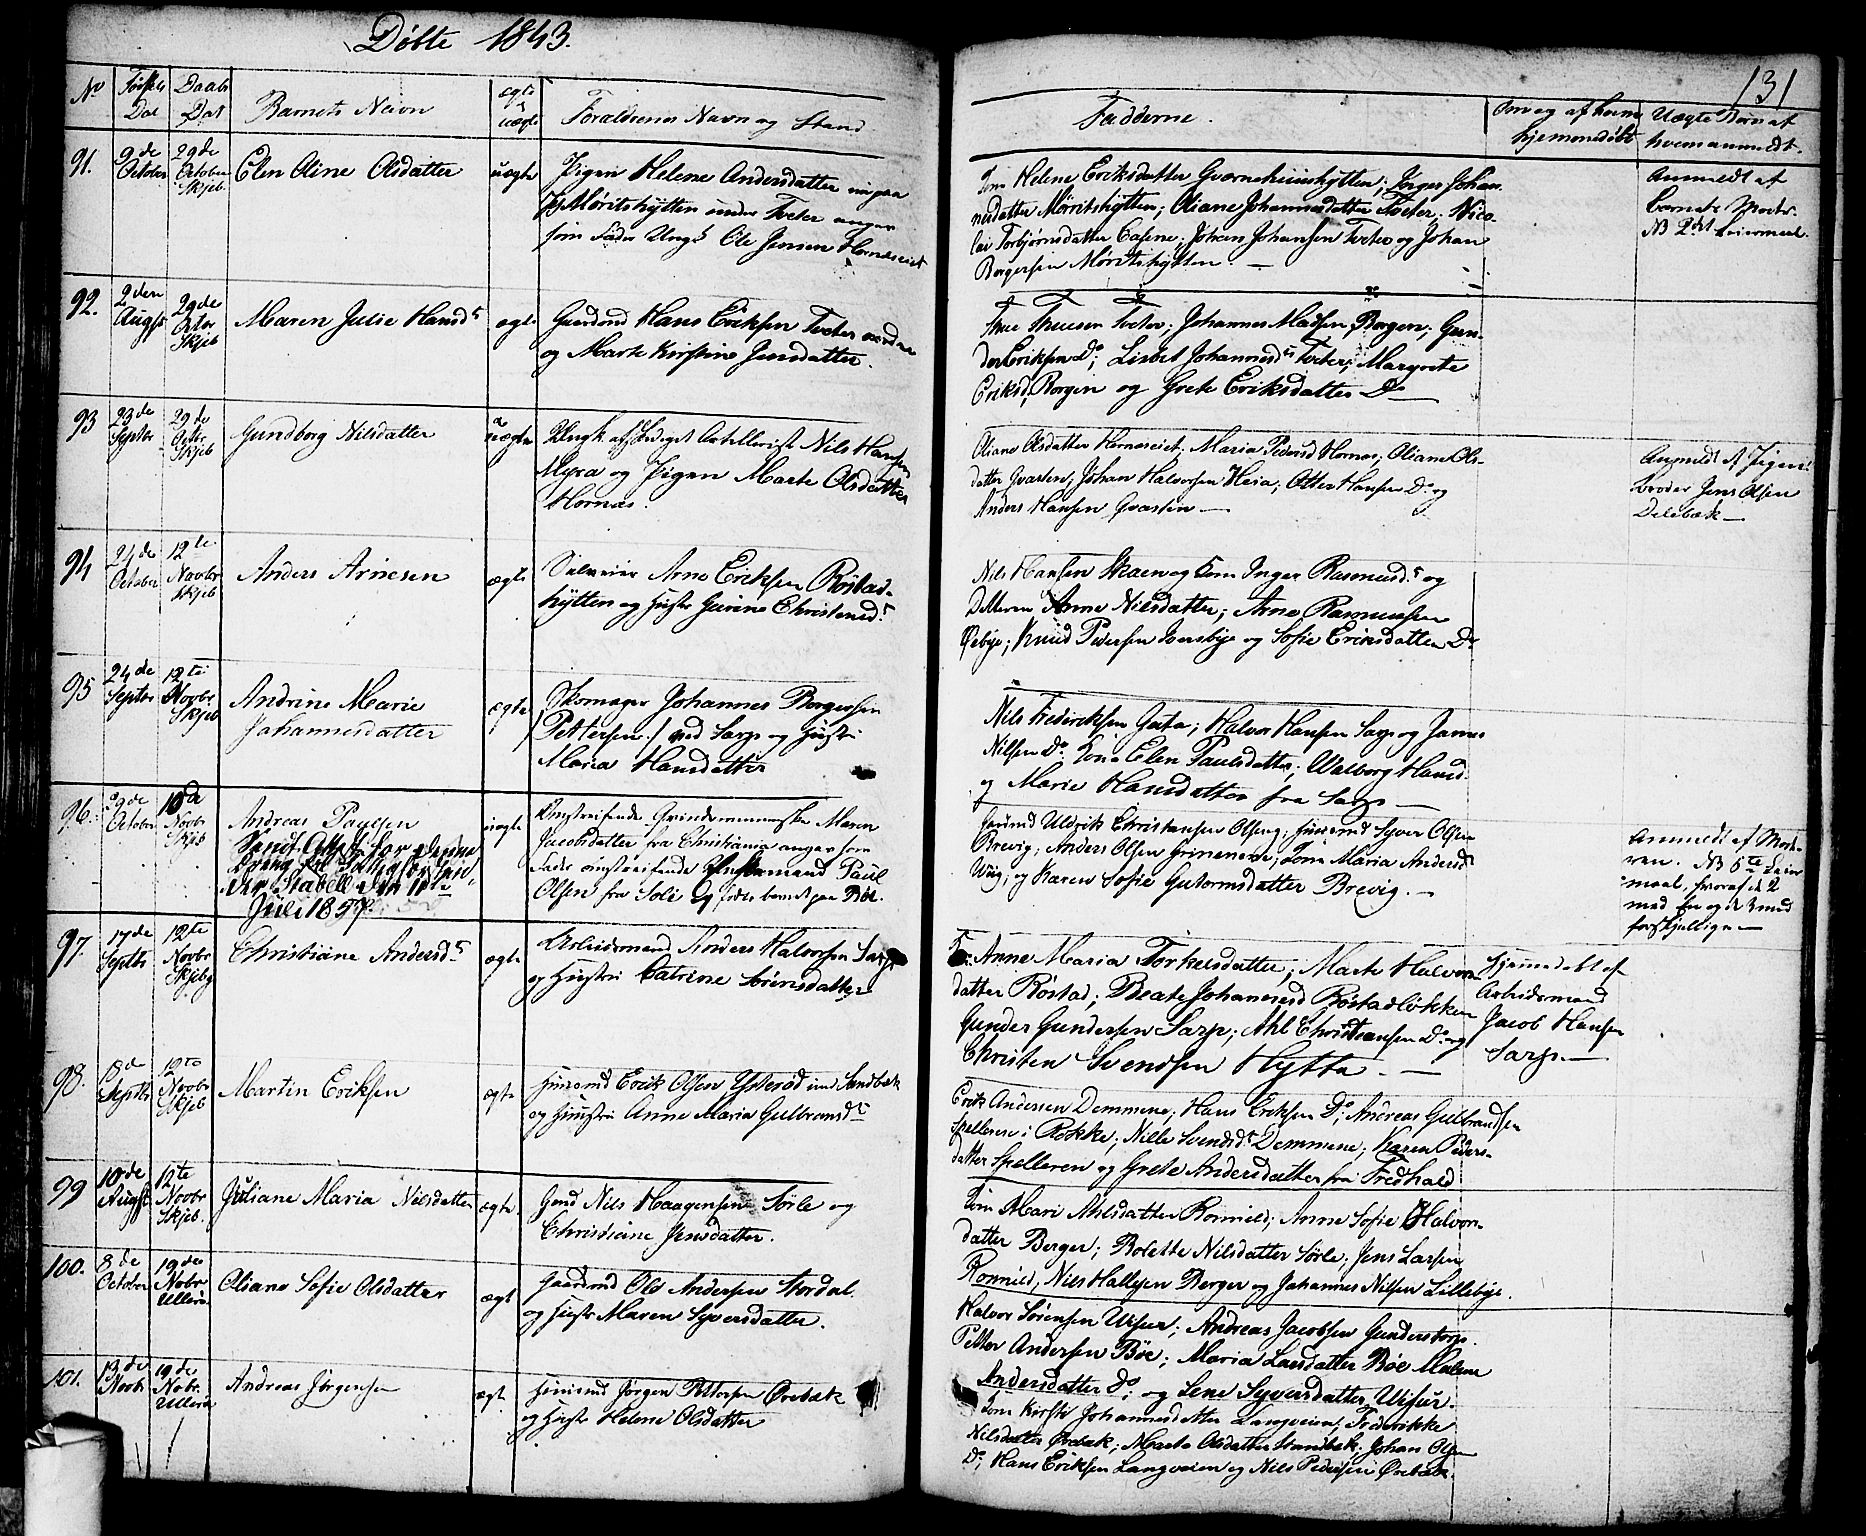 Døbte 1843.
131
No
Fødsels Dat
Daabs Dat
Barnets Navn
egte uægte
Forældrenes Navn og Stand
Fadderne.
hjemmedøbt
Uægte Børn af hvem anmeldt.
91.
9de October
29de October Skjeb
Elen Oline Olsdatter
uægte
Pigen Helene Andersdatter
Møritshytten under Tveter angav
som Fader Ungk Ole Jensen Hornæseiet
Kone Helene Eriksdatter Qvernehuushytten; Inger Johan-
nesdatter Møritshytten; Oliane Johannesdatter Tveter; Nico-
lai Torbjørnsdatter Casene; Johan Johansen Tveter og Johan
Borgersen Møritshytten. —
Anmeldt af
barnets Moder.
NB 2det Leiermaal.
92.
2den Augst
29de Octor Skjeb
Maren Julie Hansdr
ægte
Gaardmd Hans Eriksen Tveter nordre
og Marte Kirstine Jensdatter.
Tveter; Johannes Madsen Borgen; Gun-
der Eriksen Do; Lisbet Johannesdr Tveter; Margrete
Eriksd. Borgen og Grete Eriksdatter Do —
93
23de Septbr
29de Octor Skjeb
Gundborg Nilsdatter
uægte
Ungk og Artillerist Nils Hansen
Myra og Pigen Marte Olsdatter
Hornæs.
Oliane Olsdatter Hornæseiet; Maria Pedersd Hornæs; Oliane Ols-
datter Qvasten; Johan Halvorsen Heia; Otter Hansen Do og
Anders Hansen Qvasten —
Anmeldt af Pigens
broder Jens Olsen
Delebæk —
94
24de October
12te Novbr Skjeb
Anders Arnesen
ægte
Arne Eriksen Røstad-
hytten og Hustr Gunine Christensdr
Nils Hansen Skaen og Kone Inger Rasmusdr og
Datteren Anne Nilsdatter; Arne Rasmussen
Øebye; Knud Pedersen Iversbye og Sofie Eriksdatter Do
95
24de Septbr
12te Novbr Skjeb
Andrine Marie
Johannesdatter
ægte
Skomager Johannes Borgersen
(Pettersen) ved Sarps og Hustri
Maria Hansdatter
Nils Frederiksen Gata; Halvor Hansen Sarps og Jannes
Nilsen Do Kone Elen Paulsdatter; Walborg Hansd
og Marie Hansdatter fra Sarps —
96.
29de October
10de Novbr Skjeb
Andreas Paulsen
Sendt Attest for denne
Dreng
Stabell den 10de
Juli 1857.
uægte
Omstreifende Qvindemenneske Maren
Jacobsdatter fra Christiania angav som
Fader omstreifende Paul
Olsen fra Soli og fødte barnet paa Bøe.
Gaarmd Uldrik Christiansen Olseng; Huusmd Syver Olsen
Brevig; Anders Olsen Grimenes; Kone Maria Andersdr
Wiig, og Karen Sofie Gutormsdatter Brevig. —
Anmeldt af Mod-
ren. NB 5te Leier
maal, hvoraf de 2
med en og de 3 med
forskjellige —
97.
17de Septbr
12te Novbr Skjeb
Christiane Andersdr
ægte
Arbeidsmand Anders Halvorsen Sarps
og Hustri Catrine Sørensdatter
Anne Maria Torkelsdatter; Marte Halvors-
datter Røstad; Beate Johannesd Røstadløkken
Gunder Gundersen Sarps; Ahl Christiansen Do og
Christen Svendsen Hytta. —
Hjemmedøbt af
Arbeidsmand
Jacob Hansen
Sarps. —
98.
8de Septbr
12te Novbr Skjeb
Martin Eriksen
ægte
Huusmd Erik Olsen Ysterød und Sandbæk
og Huustri Anne Maria Gulbransdr
Erik Andersen Demmene; Hans Eriksen Do; Andreas Gulbrandsen
Spelleren i Rokke; Nille Svendsdr Demmene; Karen Peders-
datter Spelleren og Grete Andersdatter fra Fredhald
99
10de Augst
12te Novbr Skjeb.
Juliane Maria Nilsdatter
ægte
Gmd Nils Haagensen Sørle og
Christiane Jensdatter.
Kone Mari Ahlsdatter Romnild; Anne Sofie Halvors-
datter Berger; Bolette Nilsdatter Sørle; Jens Larsen
Romnild, Nils Hallesen Berger og Johannes Nilsen Lillebye.
100.
8de October
19de Nobr Ullerø
Oliane Sofie Olsdatter
ægt
Gaardmd Ole Andersen Stordal
og Hustr Maren Syversdatter.
Halvor Sørensen Visur; Andreas Jacobsen Gunderstorp.
Petter Andersen Bøe; Maria Larsdatter Bøe Malene
Andersdatter Do; og Lene Syversdatter Visur.
101.
13de Novb
19de Nobr. Ullerø
Andreas Jørgensen
ægt.
Huusmd Jørgen Pettersen Ørebæk
og Hustr Helene Olsdatter
Kone Kirsti Johannesdatter Langveien; Frederikke
Nilsdatter Ørebæk; Marte Olsdatter Sandbæk; Johan Olsen
Do; Hans Eriksen Langveien og Nils Pedersen Ørebæk.